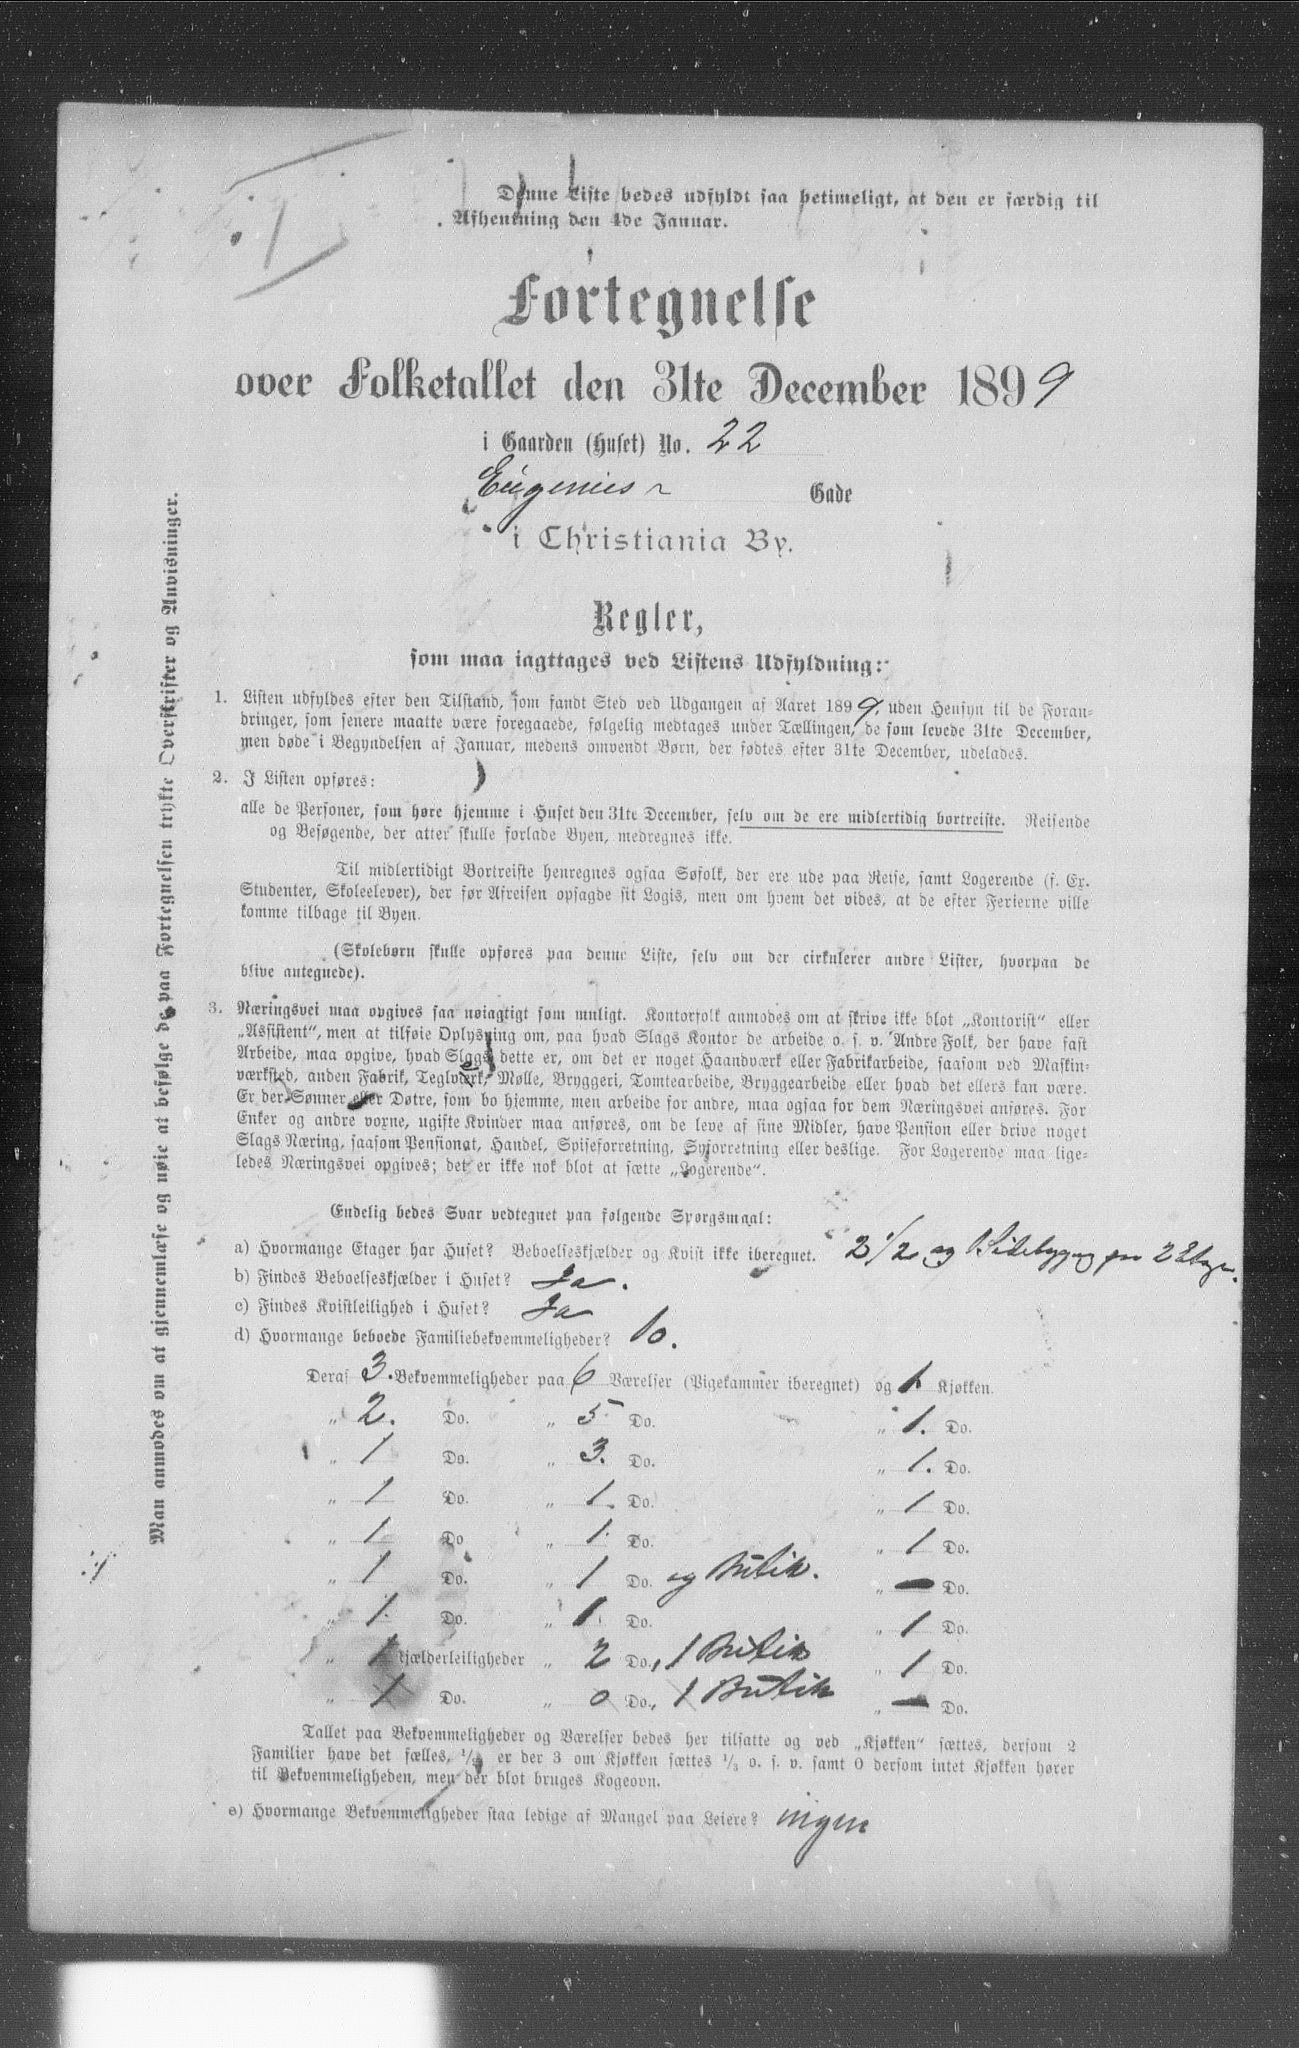 Denne Liste bedes udfyldt saa betimeligt, at den er færdig til
Afhentning den 4de Januar.
Fortegnelse
over Folketallet den 31te December 1899
i Gaarden (Huset) No. 22
Eugenies Gade
i Christiania By.
Regler,
som maa iagttages ved Listens Udfyldning:
1. Listen udfyldes efter den Tilstand, som fandt Sted ved Udgangen af Aaret 1899, uden Hensyn til de Foran-
dringer, som senere maatte være foregaaede, følgelig medtages under Tællingen, de som levede 31te December,
men døde i Begyndelsen af Januar, medens omvendt Børn, der fødtes efter 31te December, udelades.
2. I Listen opføres:
alle de Personer, som høre hjemme i Huset den 31te December, selv om de ere midlertidig bortreiste. Reisende
og Besøgende, der atter skulle forlade Byen, medregnes ikke.
Til midlertidigt Bortreiste henregnes ogsaa Søfolk, der ere ude paa Reise, samt Logerende (f. Ex.
Studenter, Skoleelever), der før Afreisen opsagde sit Logis, men om hvem det vides, at de efter Ferierne ville
komme tilbage til Byen.
(Skolebørn skulle opføres paa denne Liste, selv om der cirkulerer andre Lister, hvorpaa de
blive antegnede).
3. Næringsvei maa opgives saa nøiagtigt som muligt. Kontorfolk anmodes om at skrive ikke blot „Kontorist“ eller
„Assistent“, men at tilføie Oplysning om, paa hvad Slags Kontor de arbeide o. s. v. Andre Folk, der have fast
Arbeide, maa opgive, hvad Slags dette er, om det er noget Haandværk eller Fabrikarbeide, saasom ved Maskin-
værksted, anden Fabrik, Teglværk, Mølle, Bryggeri, Tomtearbeide, Bryggearbeide eller hvad det ellers kan være.
Er der Sønner eller Døtre, som bo hjemme, men arbeide for andre, maa ogsaa for dem Næringsvei anføres. For
Enker og andre voxne, ugifte Kvinder maa anføres, om de leve af sine Midler, have Pension eller drive noget
Slags Næring, saasom Pensionat, Handel, Spiseforretning, Syforretning eller deslige. For Logerende maa lige-
ledes Næringsvei opgives; det er ikke nok blot at sætte „Logerende“.
Endelig bedes Svar vedtegnet paa følgende Spørgsmaal:
a) Hvormange Etager har Huset? Beboelseskjælder og Kvist ikke iberegnet. 2 1/2 og 1 Sidebygng paa 2 Etager.
b) Findes Beboelseskjælder i Huset? Ja.
c) Findes Kvistleilighed i Huset? Ja
d) Hvormange beboede Familiebekvemmeligheder? 10.
Deraf 3. Bekvemmeligheder paa 6 Værelser (Pigekammer iberegnet) og 1 Kjøkken.
„ 2. Do. „ 5 Do. „ 1. Do.
„ 1 Do. „ 3. Do. „ 1. Do.
„ 1 Do. „ 1. Do. „ 1 Do.
„ 1 Do „ 1. Do. „ 1 Do.
„ 1 Do. „ 1 Do. og Butik. „ — Do.
„ 1. Do. „ 1. Do. „ 1 Do.
„ 1 Kjælderleiligheder „ 2 Do., 1 Butik „ 1 Do.
„ 1 Do. „ 0 Do., 1 Butik „ — Do.
Tallet paa Bekvemmeligheder og Værelser bedes her tilsatte og ved „Kjøkken“ sættes, dersom 2
Familier have det fælles, 1/2, er der 3 om Kjøkken sættes 1/3 o. s. v. samt 0 dersom intet Kjøkken hører
til Bekvemmeligheden, men der blot bruges Kogeovn.
e) Hvormange Bekvemmeligheder staa ledige af Mangel paa Leiere? ingen
Man anmodes om at gjennemlæse og nøie at befølge de paa Fortegnelsen trykte Overskrifter og Anvisninger.